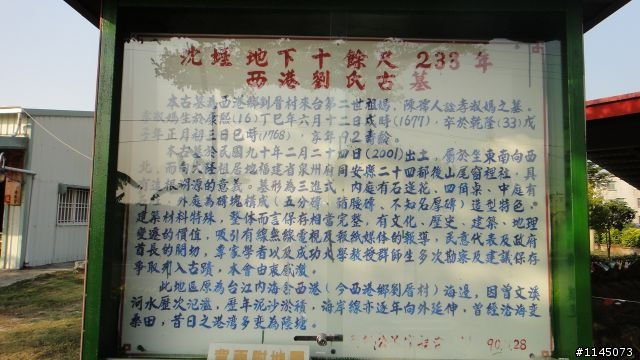 沈埋地下十餘尺 233 年
西港劉氏古墓
本古墓為西港鄉劉厝村來台第二世祖媽，陳孺人諡孝淑媽之墓。
孝淑媽生於康熙(16)丁巳年六月十二日戌時(1677)，卒於乾隆(33)戊
子年正月初三日巳時(1768)，享年92青齡。
本古墓於民國九十年二月二十四日(2001)出土，屬於坐東南向西
北，而朝大陸祖居地福建省泉州府同安縣二十四都後山尾窗裡社，具
的意義。墓形為三進式，內庭有石蓮花，四角桌，中庭有
，外庭為磚塊構成（五分磚、稍腰磚、不知名厚磚）造型特色。
建築材料特殊，整体而言保存相當完整，有文化、歷史、建築、地理
變遷的價值，吸引有線無線電視及報紙媒体的報導，民意代表及政府
首長的關切，專家學者以及成功大學教授群師生多次勘察及建議保存
爭取列入古蹟，本會由衷感激。
此地區原為台江內海舍西港（今西港鄉劉厝村）海邊，因曾文溪
河水歷次氾濫，歷年泥沙淤積，海岸線亦逐年向外延伸，曾經滄海變
桑田，昔日之港灣多變為陸塘。
90.1.28
#1145073